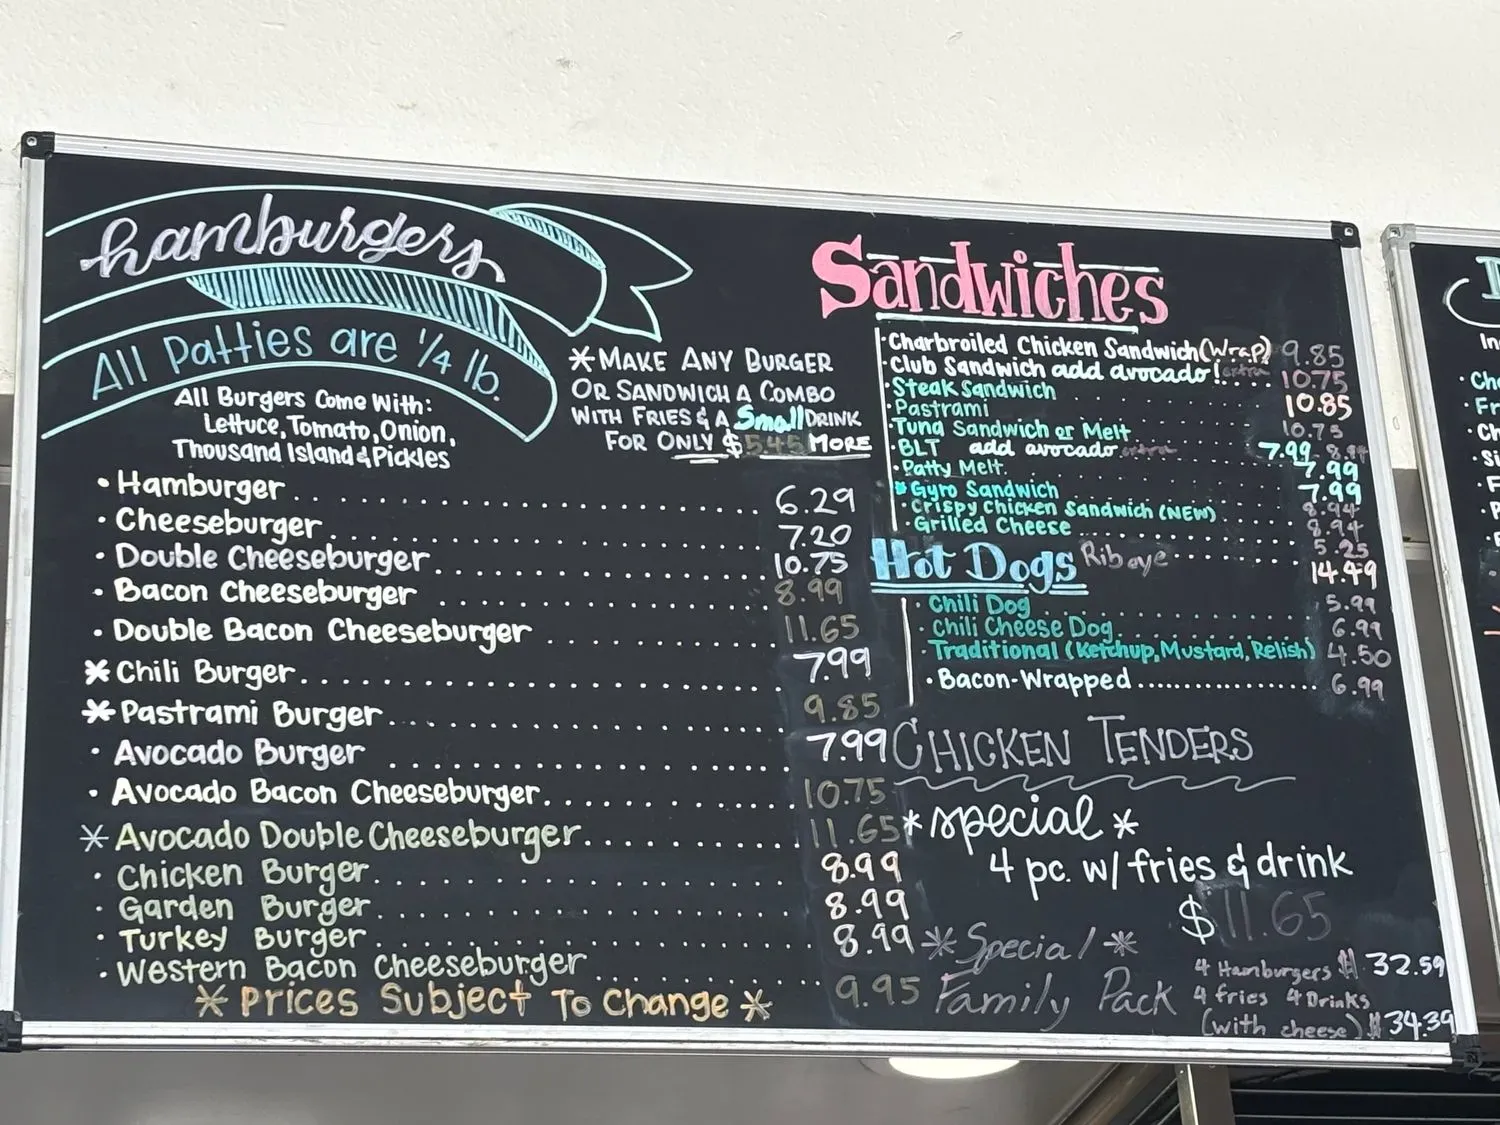 hamburgers
All Patties are 1/4 lb.
All Burgers Come With:
Lettuce, Tomato, Onion,
Thousand Island & Pickles
*Make Any Burger
Or Sandwich A Combo
With Fries & A Small Drink
For Only $5.45 More
• Hamburger 6.29
• Cheeseburger 7.20
• Double Cheeseburger 10.75
• Bacon Cheeseburger 8.99
• Double Bacon Cheeseburger 11.65
* Chili Burger 7.99
* Pastrami Burger 9.85
• Avocado Burger 7.99
• Avocado Bacon Cheeseburger 10.75
* Avocado Double Cheeseburger 11.65
• Chicken Burger 8.99
• Garden Burger 8.99
• Turkey Burger 8.99
• Western Bacon Cheeseburger 9.95
* Prices Subject To Change *
Sandwiches
• Charbroiled Chicken Sandwich (Wrap) 9.85
• Club Sandwich add avocado! extra 10.75
• Steak Sandwich 10.85
• Pastrami 10.75
• Tuna Sandwich or Melt 7.99
• BLT add avocado extra 7.99
• Patty Melt 7.99
• Gyro Sandwich 8.94
• Crispy Chicken Sandwich (NEW) 8.94
• Grilled Cheese 5.25
Ribeye 14.49
Hot Dogs
• Chili Dog 5.99
• Chili Cheese Dog 6.99
• Traditional (Ketchup, Mustard, Relish) 4.50
• Bacon-Wrapped 6.99
Chicken Tenders
*special*
4 pc. w/ fries & drink
$11.65
*Special*
Family Pack
4 Hamburgers $ 32.59
4 fries 4 Drinks
(with cheese) $34.39
In
• Ch
• Fr
• Ch
• Si
• F
• P